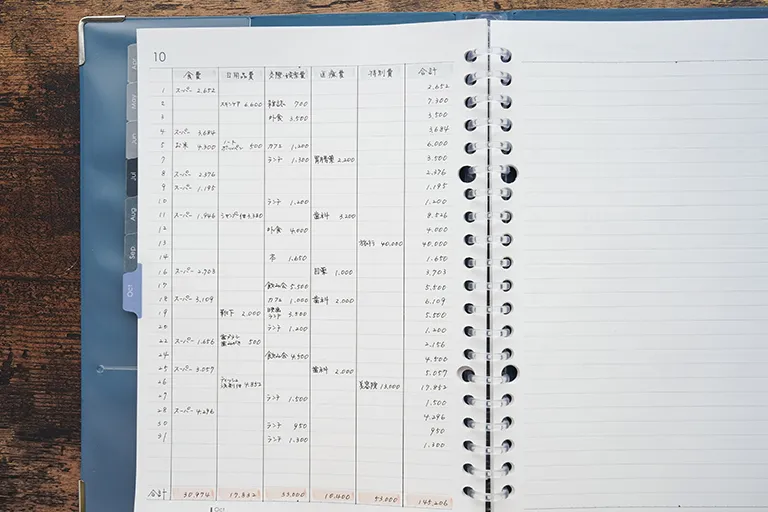 10
食費 日用品費 交際・娯楽費 医療費 特別費 合計
1 スーパー 2.652 2.652
2 スキンケア 6.600 雑誌 700 7.300
3 外食 3.500 3.500
4 スーパー 3.684 3.684
5 お米 4.300 ノート 500 カフェ 1.200 6.000
7 ランチ 1.300 胃腸薬 2.200 3.500
8 スーパー 2.376 2.376
9 スーパー 1.195 1.195
10 ランチ 1.200 1.200
11 スーパー 1.946 シャンプー他 3.380 歯科 3.200 8.526
12 外食 4.000 4.000
13 旅行 40.000 40.000
14 本 1.650 1.650
16 スーパー 2.703 目薬 1.000 3.703
17 飲み会 5.500 5.500
18 スーパー 3.109 カフェ 1.000 歯科 2.000 6.109
19 靴下 2.000 映画 ランチ 3.500 5.500
20 ランチ 1.200 1.200
22 スーパー 1.656 歯ブラシ 歯みがき 500 2.156
24 飲み会 4.500 4.500
25 スーパー 3.057 歯科 2.000 5.057
26 ティッシュ 洗剤他 4.852 美容院 13.000 17.852
27 ランチ 1.500 1.500
28 スーパー 4.296 4.296
30 ランチ 950 950
31 ランチ 1.300 1.300
合計 30.974 17.832 33.000 10.400 53.000 145.206
Apr
May
Jun
Jul
Aug
Sep
Oct
Oct